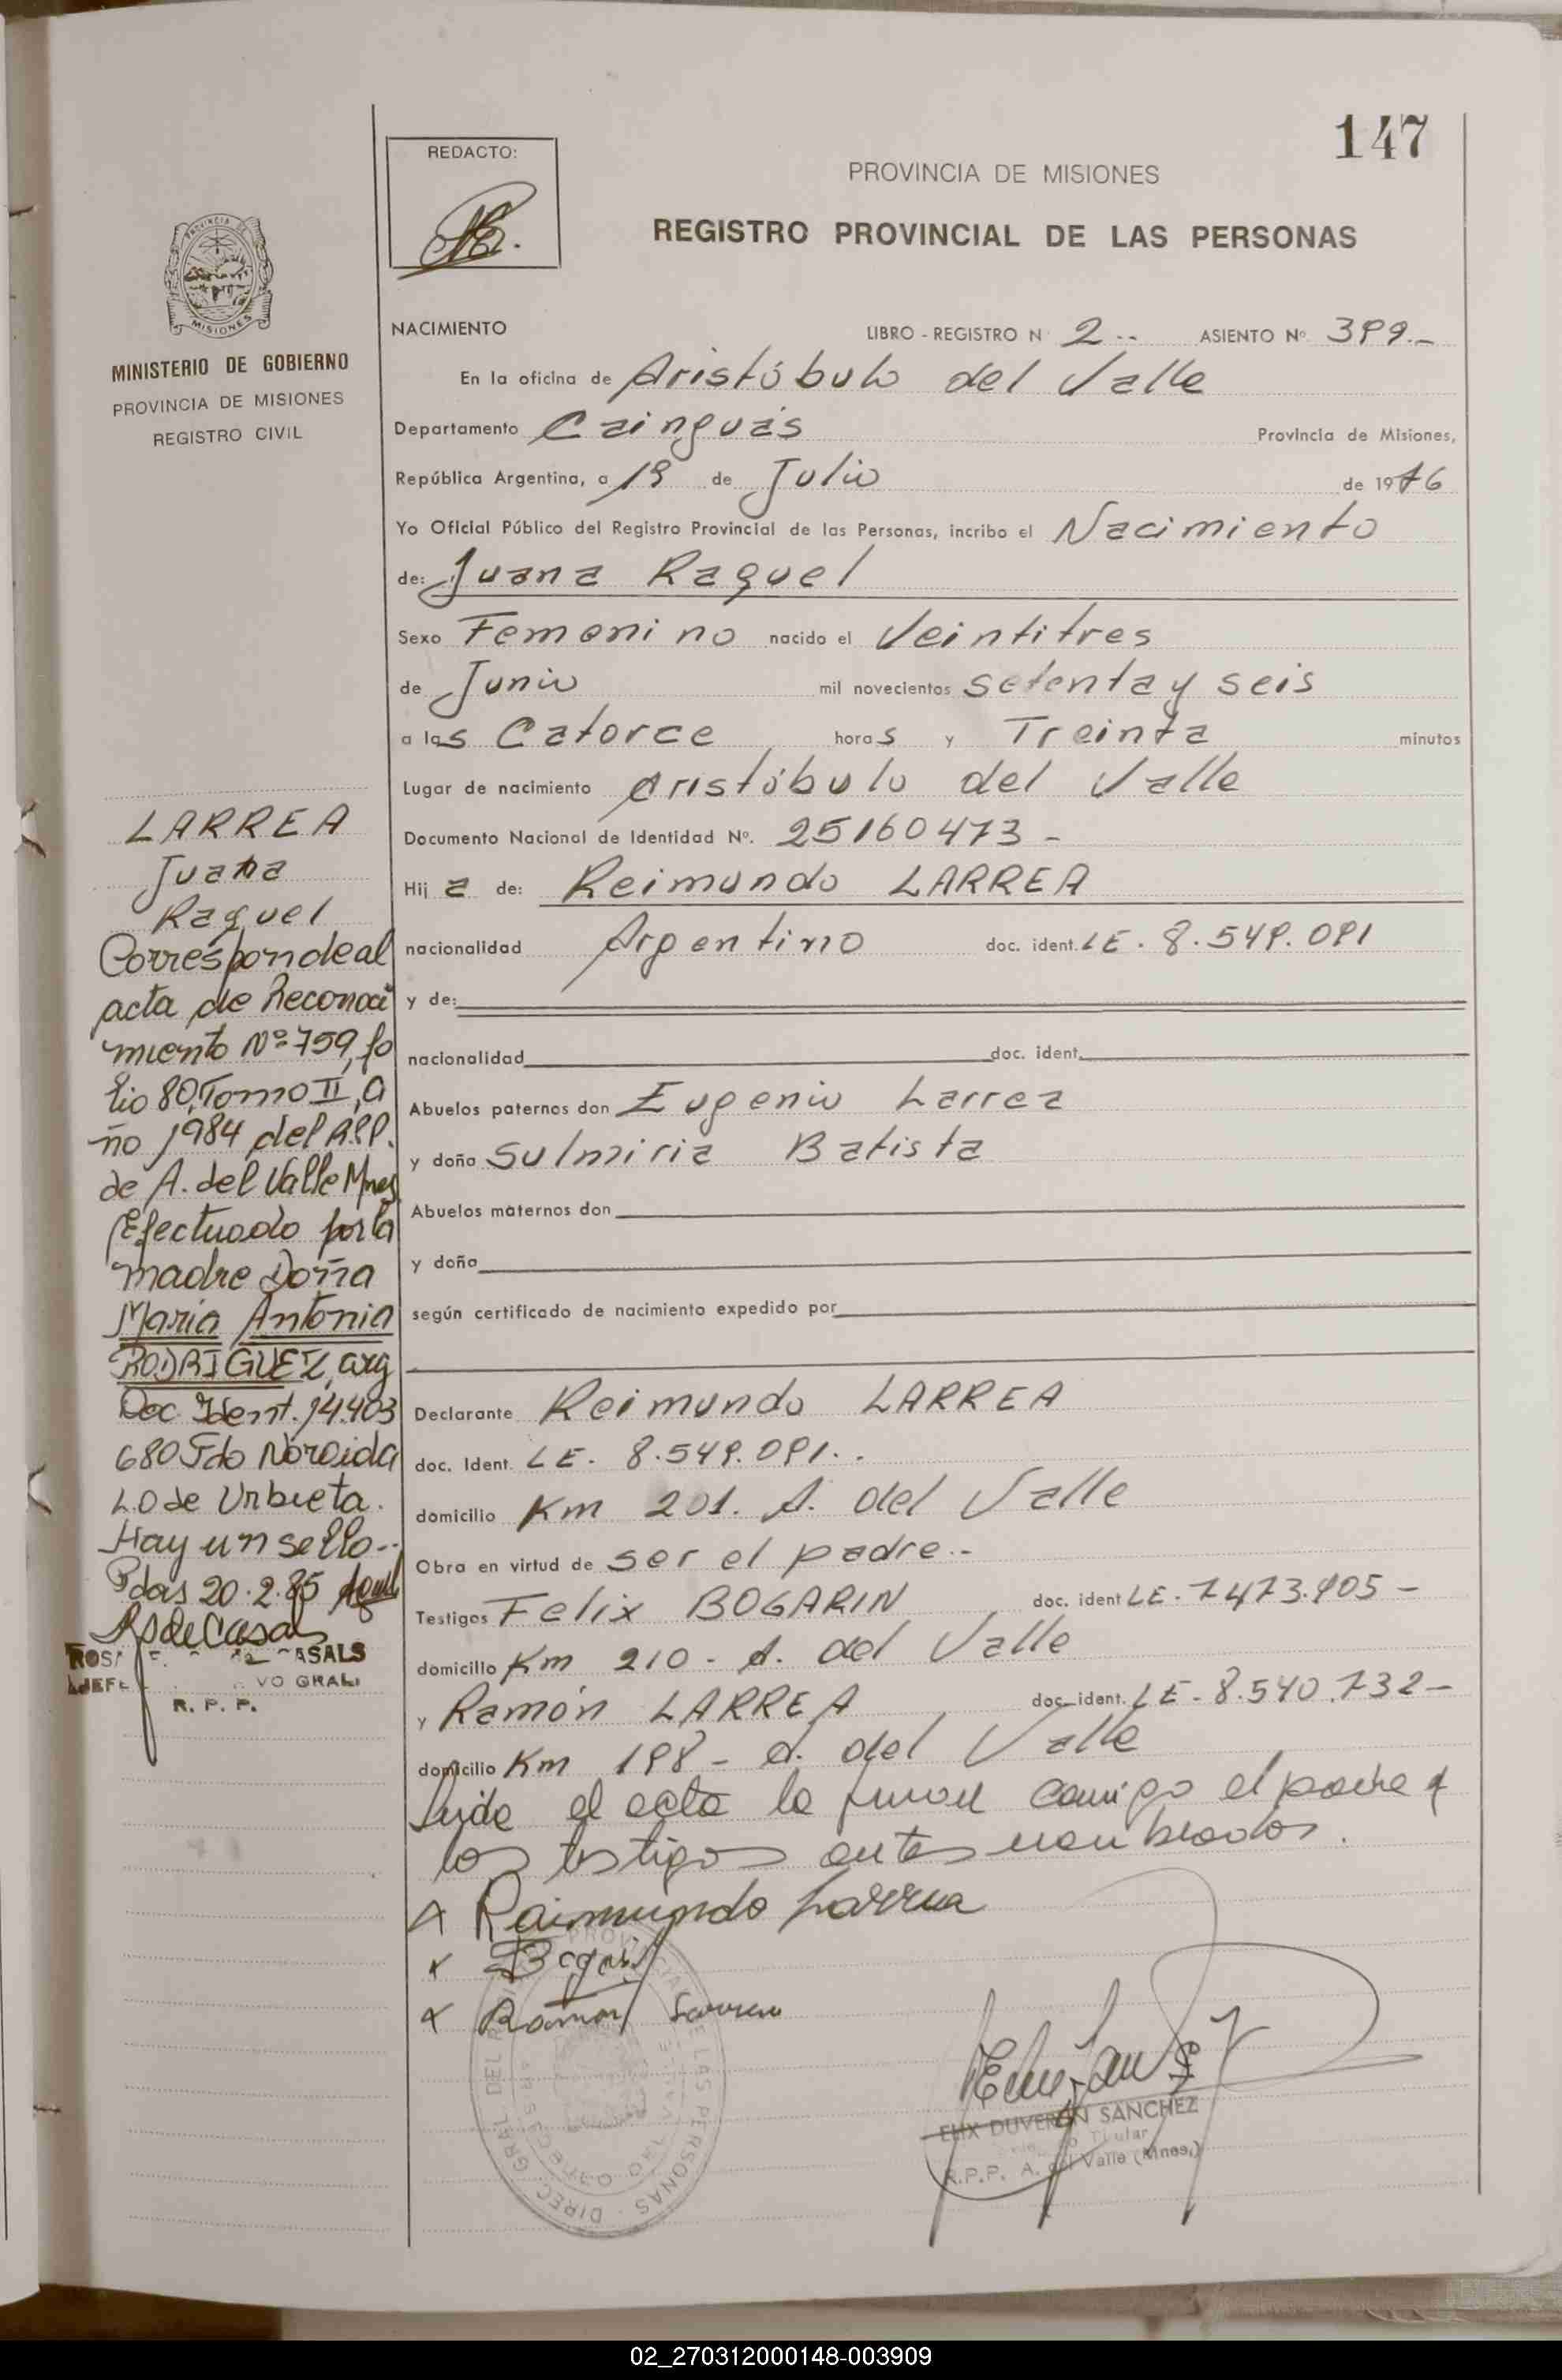 147
REDACTO:
PROVINCIA DE MISIONES
REGISTRO PROVINCIAL DE LAS PERSONAS
MINISTERIO DE GOBIERNO
PROVINCIA DE MISIONES
REGISTRO CIVIL
LARREA
Juana
Raquel
Corresponde al
acta de Reconoci
miento Nº 759, fo
lio 80, Tomo II, a
ño 1984 del R.P.P.
de A. del Valle Mnes
Efectuado por la
madre Doña
Maria Antonia
RODRIGUEZ, arg
Doc Ident. 14.403
680 Fdo Noroida
L.O de Urbieta.
Hay un sello..
Pdas 20.2.85
R. P. P.
NACIMIENTO LIBRO - REGISTRO N 2.. ASIENTO Nº 399.-
En la oficina de Aristóbulo del Valle
Departamento Cainguás Provincia de Misiones,
República Argentina, a 19 de Julio de 1976
Yo Oficial Público del Registro Provincial de las Personas, incribo el Nacimiento
de: Juana Raquel
Sexo Femenino nacido el Veintitres
de Junio mil novecientos setenta y seis
a las Catorce horas y Treinta minutos
Lugar de nacimiento Aristóbulo del Valle
Documento Nacional de Identidad Nº. 25160473 -
Hija de: Reimundo LARREA
nacionalidad Argentino doc. ident. LE. 8.549.091
y de:
nacionalidad doc. ident.
Abuelos paternos don Eugenio Larrea
y doña Sulmiria Batista
Abuelos maternos don
y doña
según certificado de nacimiento expedido por
Declarante Reimundo LARREA
doc. Ident. LE. 8.549.091..
domicilio Km 201. A. del Valle
Obra en virtud de ser el padre.-
Testigos Felix BOGARIN doc. ident LE. 7473.905 -
domicilio Km 210 - A. del Valle
y Ramón LARREA doc. ident. LE - 8.540.732 -
domicilio Km 198 - A. del Valle
leida el acta la firman conmigo el padre y
los testigos antes nombrados.
Raimundo Larrea
Ramon Larrea
ELIX DUVERAN SANCHEZ
Titular
R.P.P. A. del Valle (Mnes.)
02_270312000148-003909